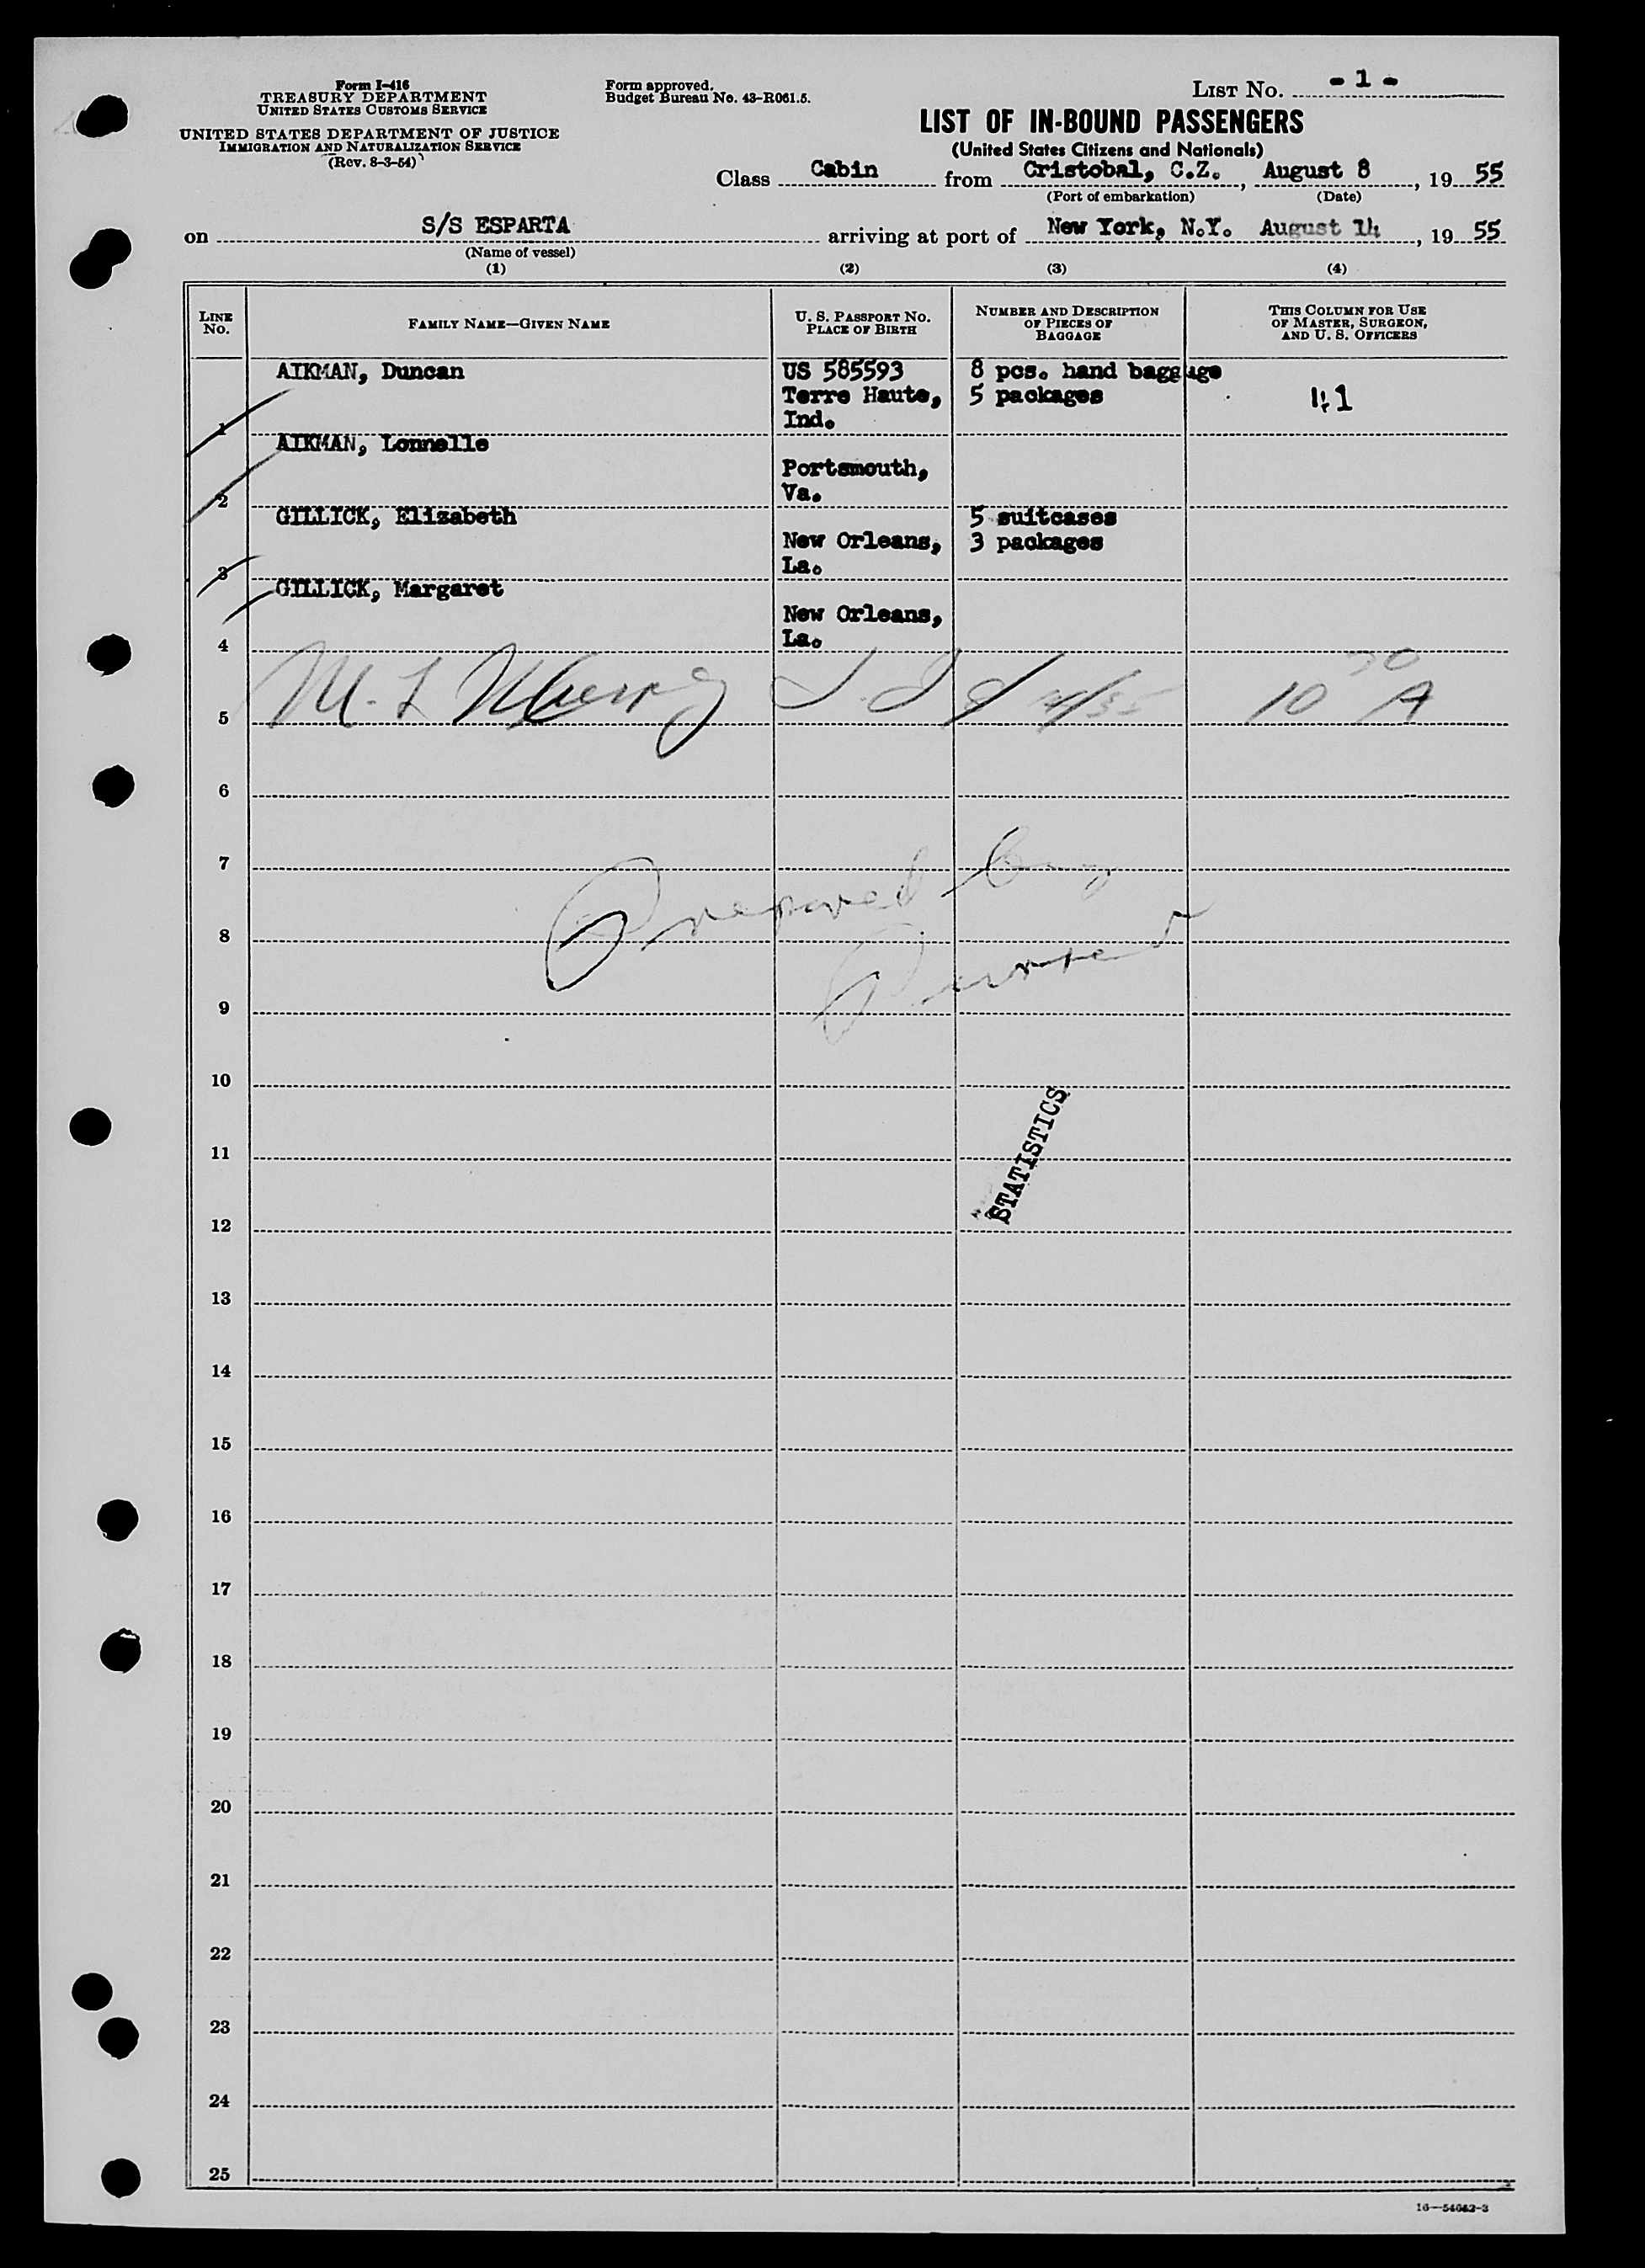 Form I-416
TREASURY DEPARTMENT
UNITED STATES CUSTOMS SERVICE
UNITED STATES DEPARTMENT OF JUSTICE
IMMIGRATION AND NATURALIZATION SERVICE
(Rev. 8-3-54)
Form approved.
Budget Bureau No. 43-R061.5.
LIST NO. - 1 -
LIST OF IN-BOUND PASSENGERS
(United States Citizens and Nationals)
Class Cabin from Cristobal, C.Z., August 8, 1955
(Port of embarkation) (Date)
on S/S ESPARTA arriving at port of New York, N.Y. August 14, 1955
(Name of vessel)
(1) (2) (3) (4)
LINE NO.
FAMILY NAME—GIVEN NAME
U. S. PASSPORT NO.
PLACE OF BIRTH
NUMBER AND DESCRIPTION
OF PIECES OF
BAGGAGE
THIS COLUMN FOR USE
OF MASTER, SURGEON,
AND U. S. OFFICERS
AIKMAN, Duncan US 585593 8 pcs. hand baggage
Terre Haute, 5 packages 41
1 Ind.
AIKMAN, Lonnelle
Portsmouth,
2 Va.
GILLICK, Elizabeth 5 suitcases
New Orleans, 3 packages
3 La.
GILLICK, Margaret
New Orleans,
4 La.
5 M. L 10 30 A
6
7
Prepared by
8
Purser
9
10
11
STATISTICS
12
13
14
15
16
17
18
19
20
21
22
23
24
25
16—54042-3